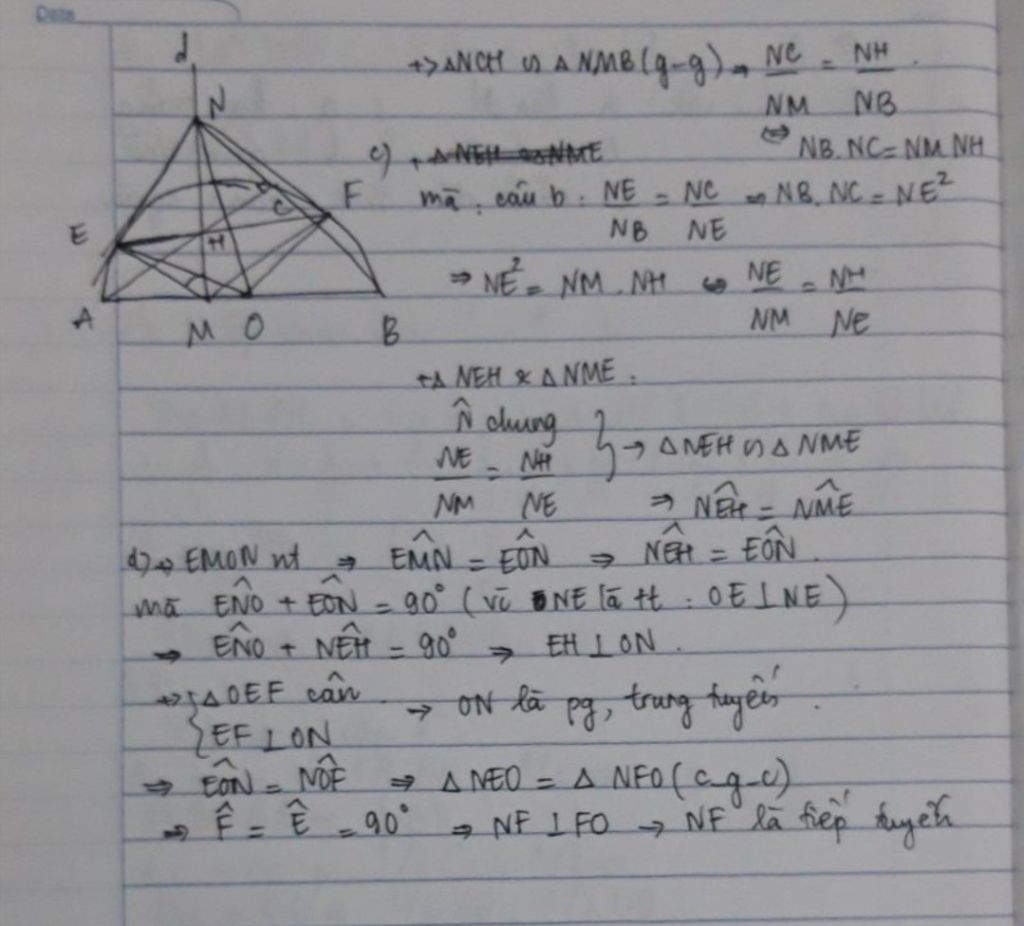 Date
d
N
E
F
C
H
A
M O B
+> ΔNCH ∽ ΔNMB (g-g) ⇒ NC/NM = NH/NB.
⇔ NB.NC = NM.NH
c) + ΔNEH ∽ ΔNME
mà : câu b : NE/NB = NC/NE ⇔ NB.NC = NE²
⇒ NE² = NM.NH ⇔ NE/NM = NH/NE
+Δ NEH & ΔNME :
N̂ chung
NE/NM = NH/NE } → ΔNEH ∽ ΔNME
⇒ NÊH = NM̂E
d) → EMON nt ⇒ EM̂N = EÔN ⇒ NÊH = EÔN.
mà EN̂O + EÔN = 90° (vì NE là tt : OE⊥NE)
⇒ EN̂O + NÊH = 90° ⇒ EH⊥ON.
+> { ΔOEF cân → ON là pg, trung tuyến.
EF⊥ON
⇒ EÔN = NÔF ⇒ ΔNEO = ΔNFO (c-g-c)
⇒ F̂ = Ê = 90° ⇒ NF⊥FO → NF là tiếp tuyến